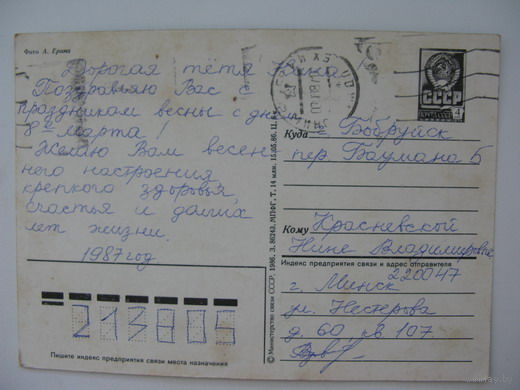 Фото А. Ерина
Дорогая тётя Нина
Поздравляю Вас с
праздником весны с днём
8ое марта!
Желаю Вам весен
него настроения
крепкого здоровья
счастья и долгих
лет жизни.
1987 год
213805
Пишите индекс предприятия связи места назначения
© Министерство связи СССР, 1986. З. 86243. МПФГ. Т. 14 млн. 15.05.86. Ц. 4 к.
СССР
Куда г. Бобруйск
пер. Баумана 5
Кому Красневской
Нине Владимировне
Индекс предприятия связи и адрес отправителя
220047
г. Минск
ул. Нестерова
д. 60 кв 107